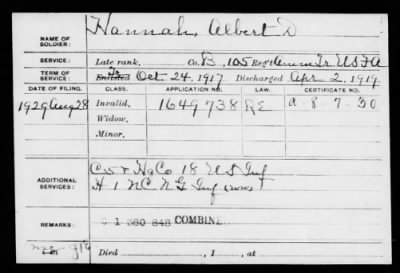 NAME OF SOLDIER: Hannah, Albert D
SERVICE: Late rank, Co. B, 105 Reg't Amm Tr USFA
TERM OF SERVICE: Enlisted Oct 24, 1917, Discharged Apr 2, 1919
DATE OF FILING. CLASS. APPLICATION NO. LAW. CERTIFICATE NO.
1929 Aug 28 Invalid, 1649738 RE a-8-7-30
Widow,
Minor,
ADDITIONAL SERVICES: Co & Hq Co 18 US Inf
H 1 NC NG Inf
REMARKS: C 1 380 848 COMBINE
Died , 1 , at